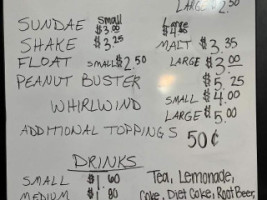 LARGE $2.50
SUNDAE small $3.00 large $4.
SHAKE $3.25 MALT $3.35
FLOAT SMALL $2.50 LARGE $3.00
PEANUT BUSTER $5.25
WHIRLWIND SMALL $4.00
LARGE $5.00
ADDITIONAL TOPPINGS 50¢
DRINKS
SMALL $1.60 Tea, Lemonade,
MEDIUM $1.80 Coke, Diet Coke, Root Beer,